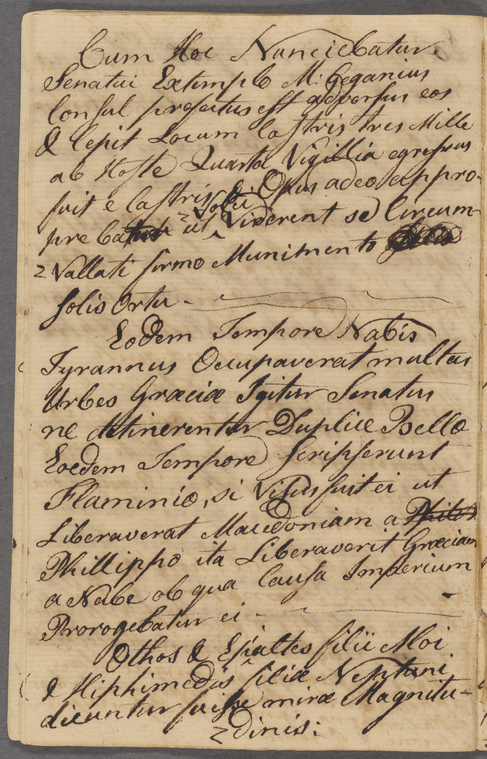 Cum Hoc Nunciebatur
Senatui Extemplo M: Geganius
Consul profectus est adversus eos
& Cepit Locum Castris tres Mille
ab Hoste Quarta Vigillia egressus
fuit e Castris & Opus adeo appro-
pre batur ut Volsci Viderent se Circum-
Vallati firmo Munimento
Solis Ortu
Eodem Tempore Nabis
Tyrannus Occupaverat multas
Urbes Græciæ Igitur Senatus
ne detinerentur Duplice Bello
Eoedem Tempore Scripserunt
Flaminio, si Visus fuit ei ut
Liberaverat Macedoniam a
Phillippo ita Liberaverit Græciam
a Nabe ob qua Causa Impercum
Prorogebatur ei
Othos & Epialtes filii Aloi
& Hiphimedas filiæ Neptuni
dicuntur fuisse miræ Magnitu-
dinis: